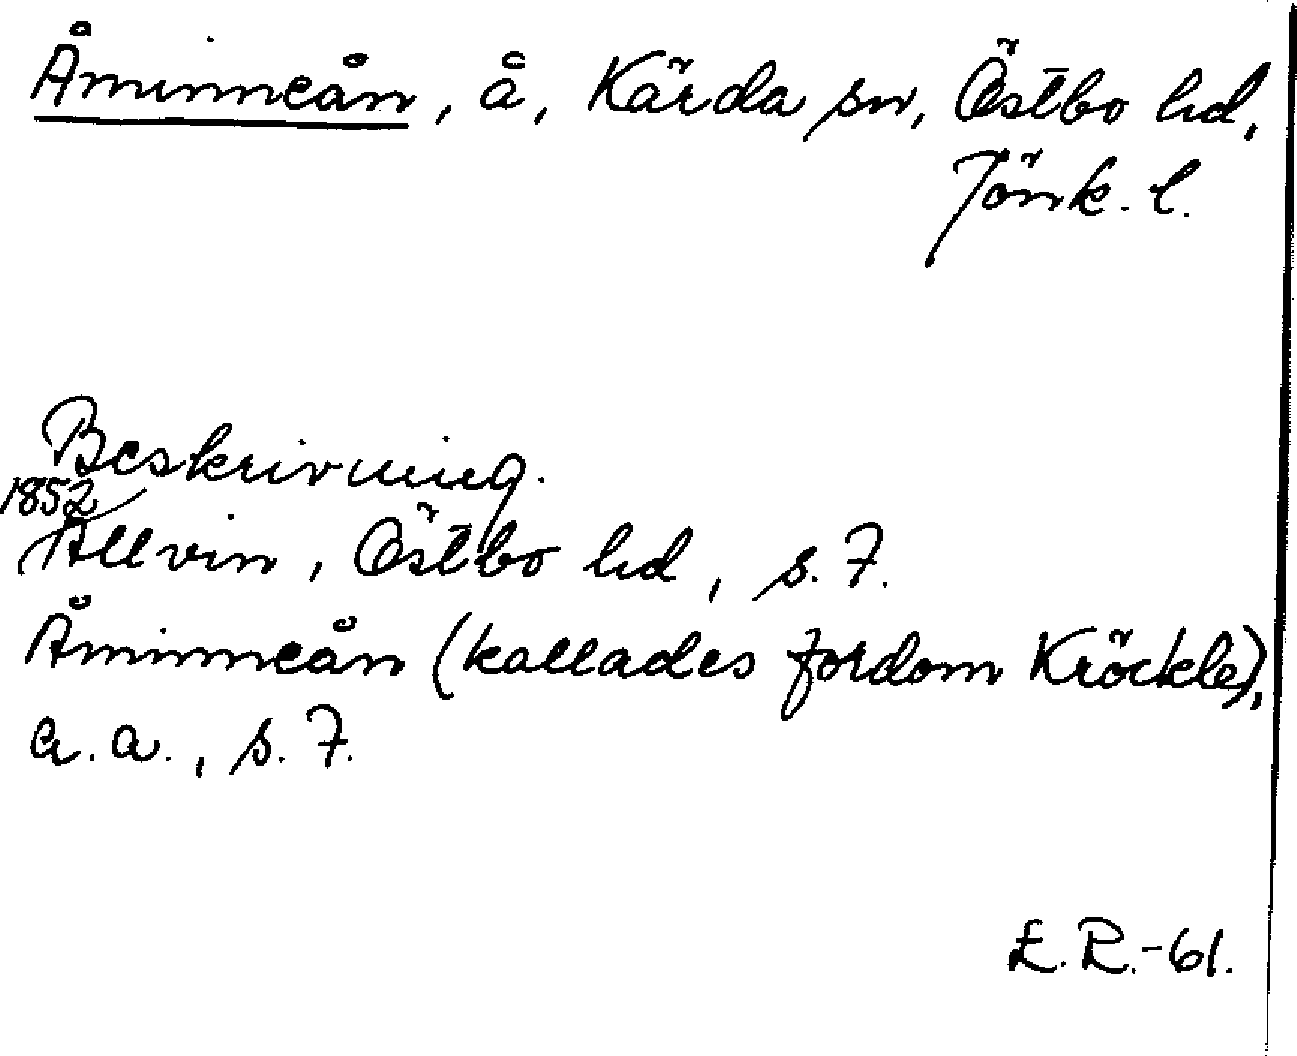 Åminneån, å, Kärda sn, Östbo hd,
Jönk. l.
Beskrivning.
1852
Allvin, Östbo hd, s. 7.
Åminneån (kallades fordom Kröckle),
a. a., s. 7.
E. R. -61.